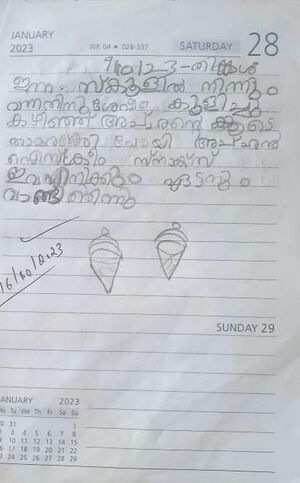 JANUARY
2023
WK 04 • 028-337
SATURDAY
28
9/10/23-തിങ്കൾ
ഇന്ന സ്കൂളിൽ നിന്നും
വന്നതിനുശേഷം കുളിച്ചു
കഴിഞ്ഞ് അച്ഛൻ്റെ കൂടെ
പോയി അച്ഛൻ
ഐസ്ക്രീം സ്നാക്സ്
ഇവ എനിക്കും ഏട്ടനും
വാങ്ങി തന്നു
16/10/2023
SUNDAY 29
JANUARY 2023
Mo Tu We Th Fr Sa Su
30 31 1
2 3 4 5 6 7 8
9 10 11 12 13 14 15
16 17 18 19 20 21 22
23 24 25 26 27 28 29